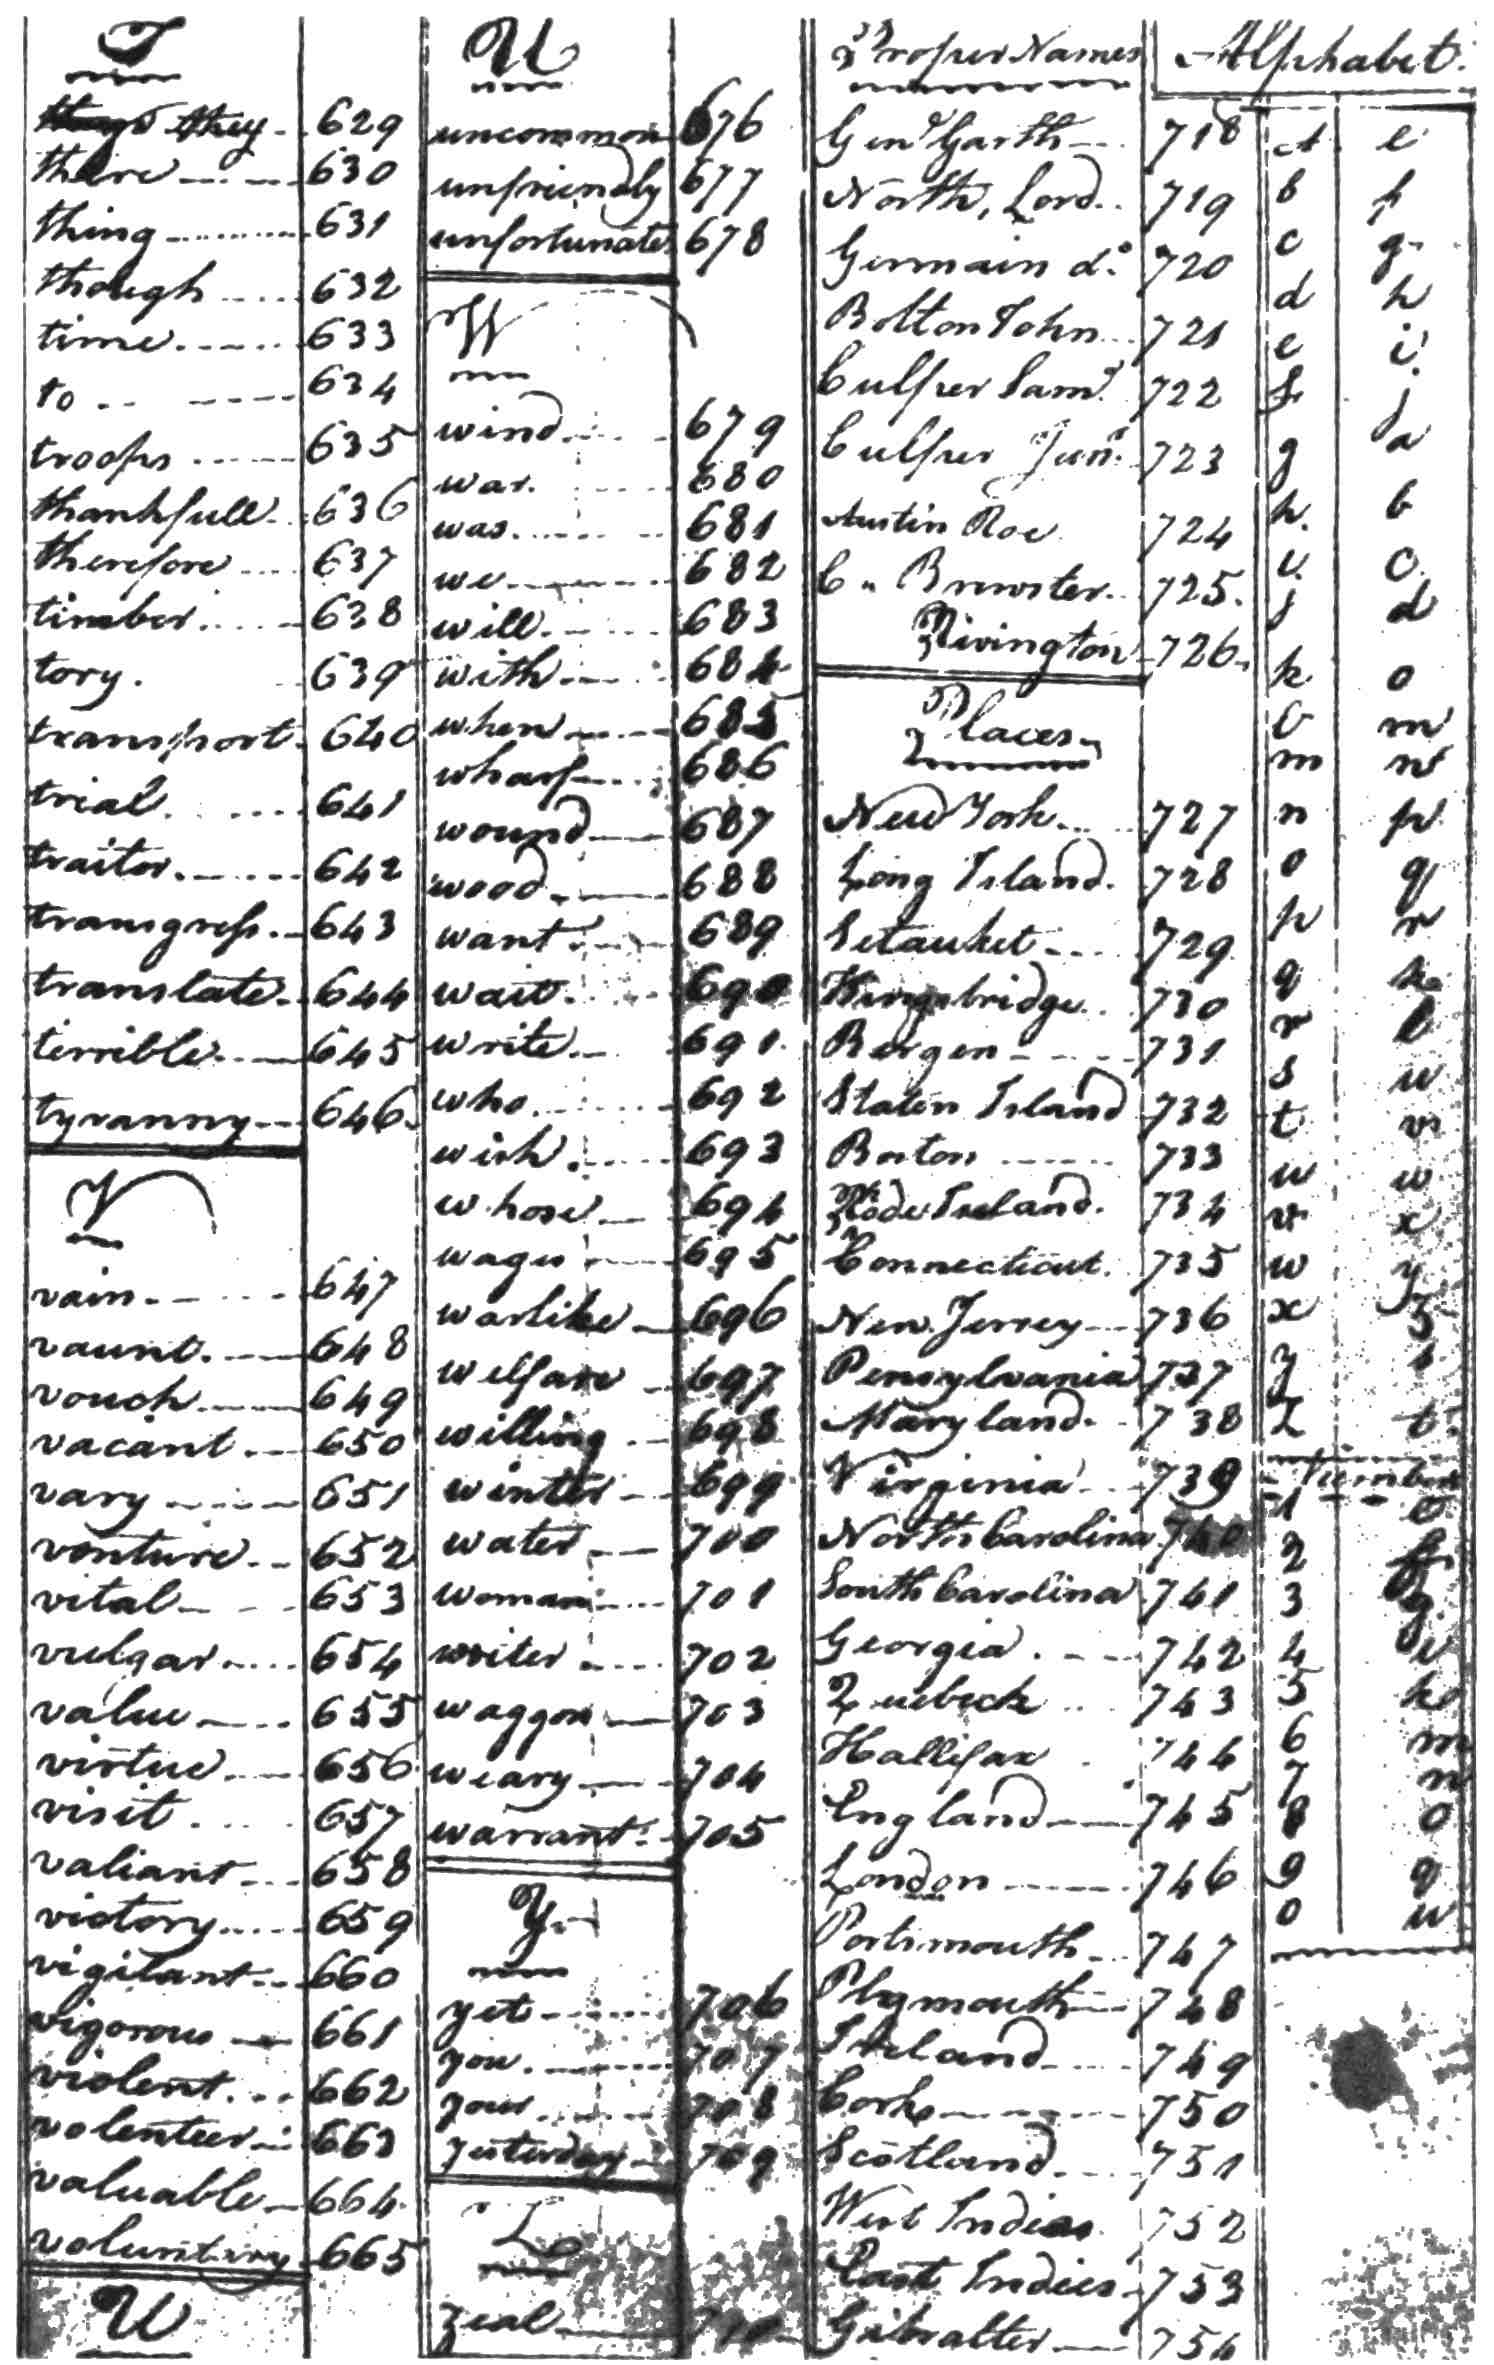 T
they 629
there 630
thing 631
though 632
time 633
to 634
troops 635
thankfull 636
therefore 637
timber 638
tory. 639
transport 640
trial 641
traitor 642
transgress 643
translate 644
terrible 645
tyranny 646
V
vain 647
vaunt 648
vouch 649
vacant 650
vary 651
venture 652
vital 653
vulgar 654
value 655
virtue 656
visit 657
valiant 658
victory 659
vigilant 660
vigorous 661
violent 662
volenteer 663
valuable 664
voluntary 665
U
U
uncommon 676
unfriendly 677
unfortunate 678
W
wind 679
war 680
was 681
we 682
will 683
with 684
when 685
wharf 686
wound 687
wood 688
want 689
wait 690
write 691
who 692
wish 693
whose 694
wages 695
warlike 696
welfare 697
willing 698
winter 699
water 700
woman 701
writer 702
waggon 703
weary 704
warrant 705
Y
yet 706
you 707
your 708
yesterday 709
Z
zeal 710
Proper Names
Genl Garth 718
North, Lord 719
Germain do. 720
Bolton John 721
Culper Saml. 722
Culper Junr. 723
Austin Roe 724
C.. Brewster 725.
Rivington 726
Places
New York 727
Long Island 728
Setauket 729
Kingsbridge 730
Bergen 731
Staten Island 732
Boston 733
Rode Island 734
Connecticut 735
New Jersey 736
Pensylvania 737
Maryland 738
Virginia 739
North Carolina 740
South Carolina 741
Georgia 742
Quebeck 743
Hallifax 744
England 745
London 746
Portsmouth 747
Plymouth 748
Ireland 749
Cork 750
Scotland 751
West Indies 752
East Indies 753
Gibralter 754
Alphabet
a e
b f
c g
d h
e i
f j
g a
h b
i c
j d
k o
l m
m n
n p
o q
p r
q k
r l
s u
t v
u w
v x
w y
x z
y s
z t
Numbers
1 e
2 f
3 g
4 i
5 k
6 m
7 n
8 o
9 q
0 u